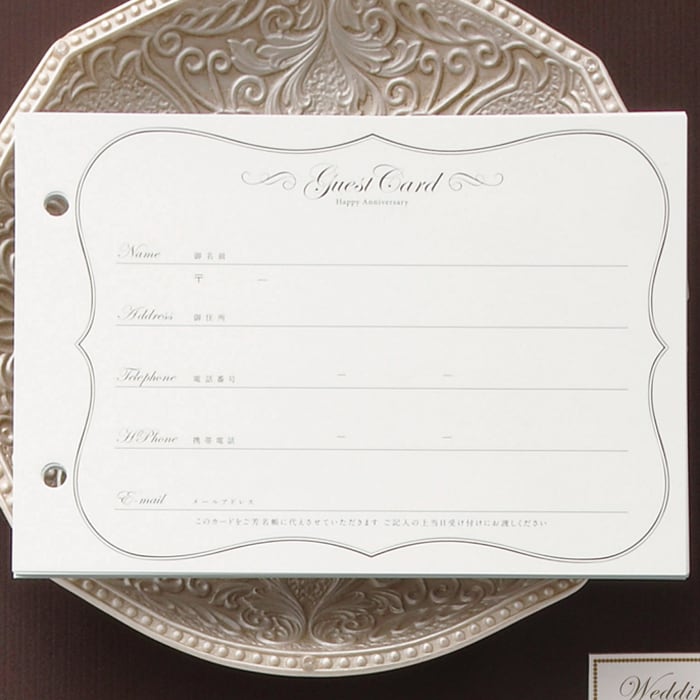 Guest Card
Happy Anniversary
Name 御名前
〒 —
Address 御住所
Telephone 電話番号 — —
H'Phone 携帯電話 — —
E-mail メールアドレス
このカードをご芳名帳に代えさせていただきます ご記入の上当日受け付けにお渡しください